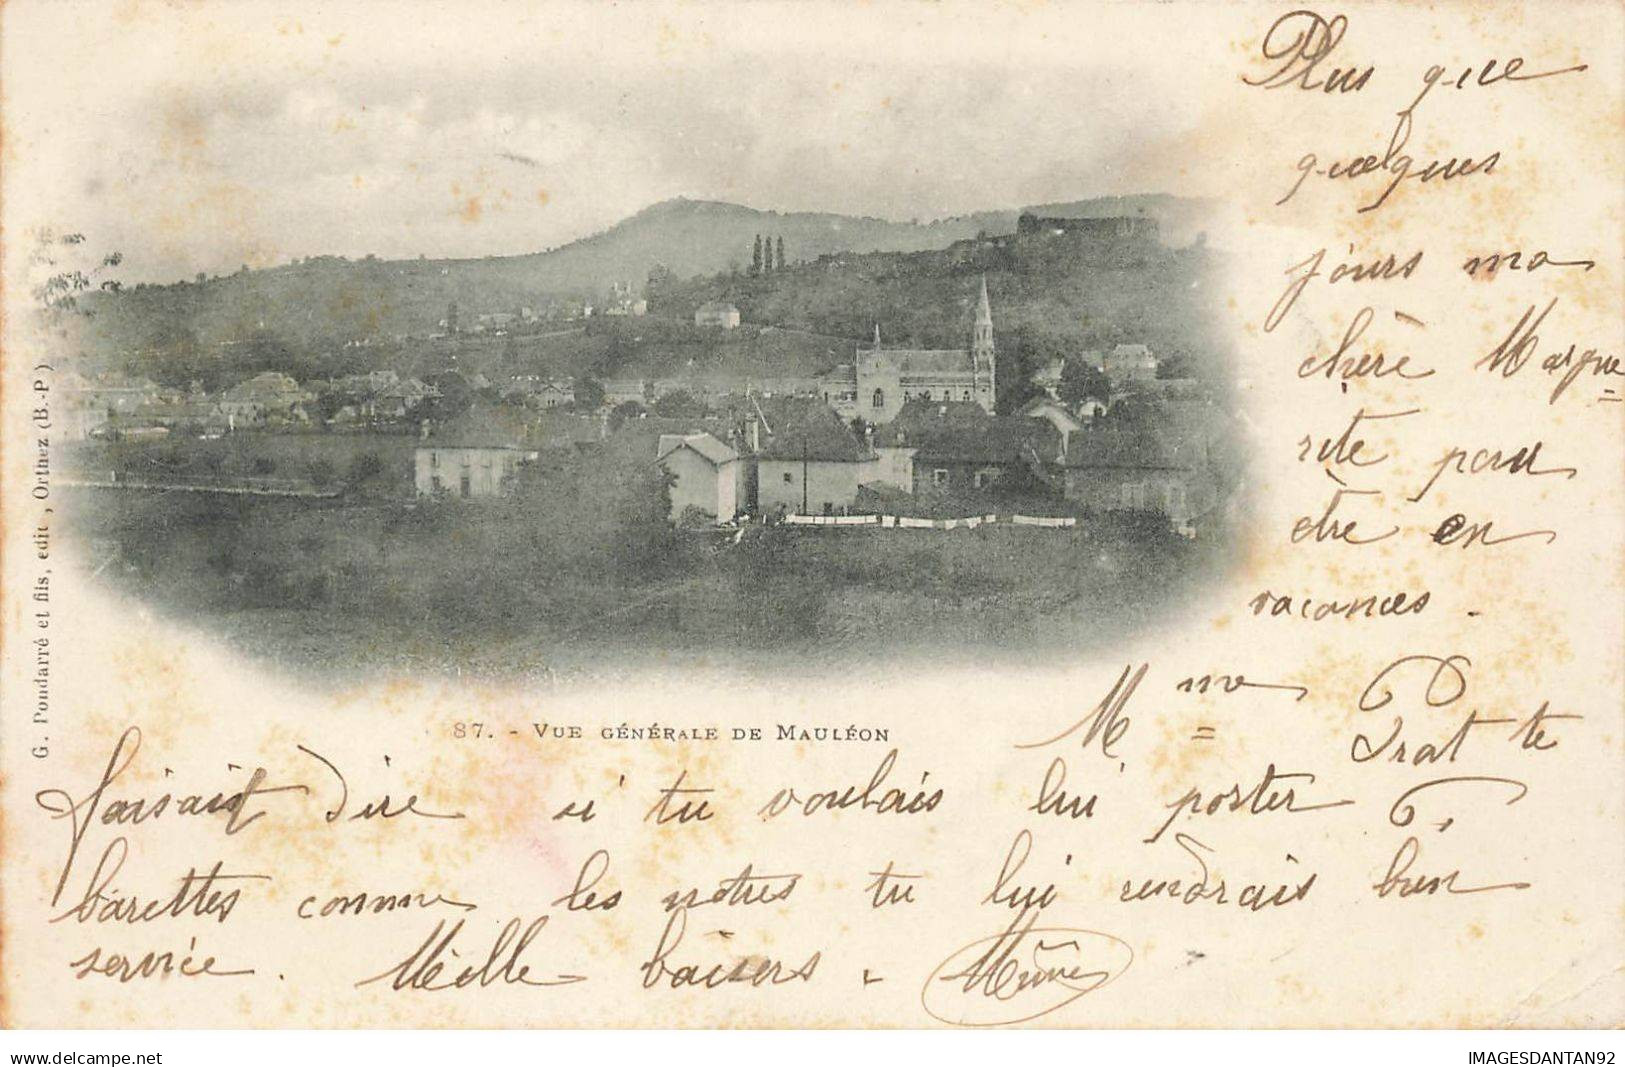 Plus que
quelques
jours ma
chère Margue=
rite pour
être en
vacances.
G. Pondarré et fils, edit, Orthez (B.-P)
87. - VUE GÉNÉRALE DE MAULÉON
Mme Prat te
faisait dire si tu voulais lui porter 6
barettes comme les notres tu lui rendrais bien
service. Mille baisers.
delcampe.net
IMAGESDANTAN92